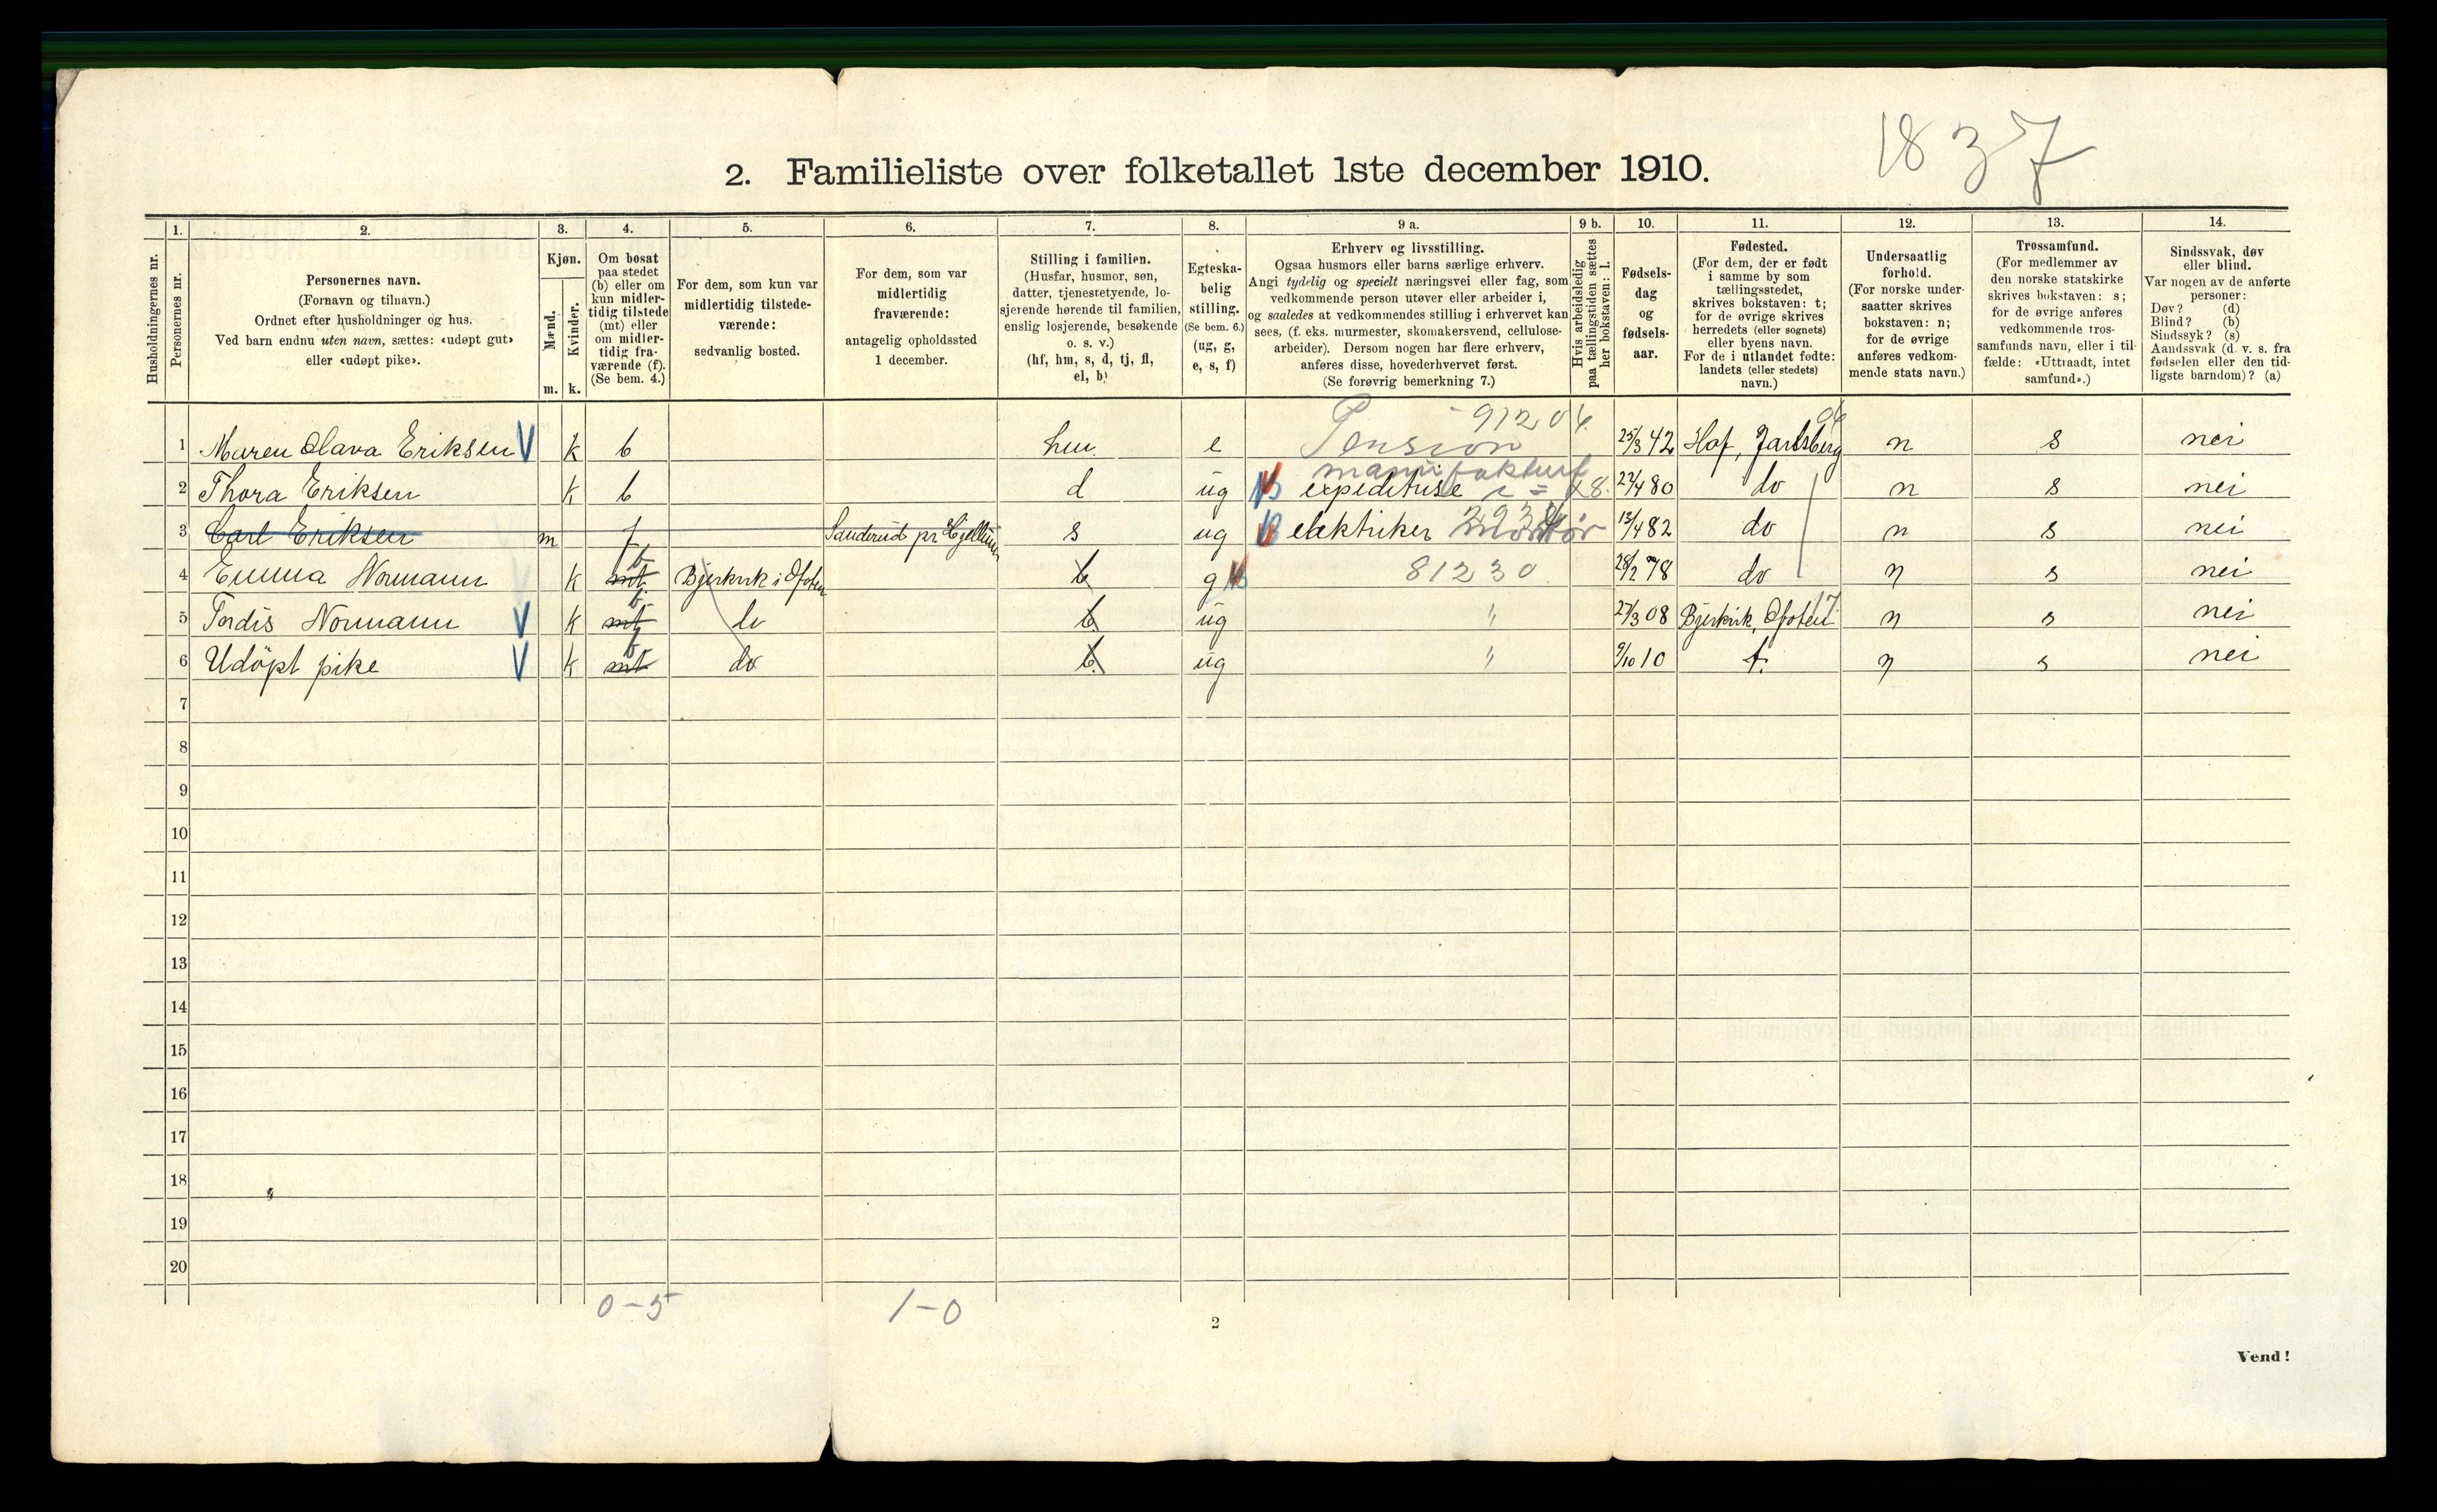 1837
2. Familieliste over folketallet 1ste december 1910.
Husholdningernes nr.
1. Personernes nr.
2. Personernes navn. (Fornavn og tilnavn.) Ordnet efter husholdninger og hus. Ved barn endnu uten navn, sættes: «udøpt gut» eller «udøpt pike».
3. Kjøn. Mænd. m. Kvinder. k.
4. Om bosat paa stedet (b) eller om kun midlertidig tilstede (mt) eller om midlertidig fraværende (f). (Se bem. 4.)
5. For dem, som kun var midlertidig tilstedeværende: sedvanlig bosted.
6. For dem, som var midlertidig fraværende: antagelig opholdssted 1 december.
7. Stilling i familien. (Husfar, husmor, søn, datter, tjenestetyende, losjerende hørende til familien, enslig losjerende, besøkende o. s. v.) (hf, hm, s, d, tj, fl, el, b)
8. Egteskabelig stilling. (Se bem. 6.) (ug, g, e, s, f)
9 a. Erhverv og livsstilling. Ogsaa husmors eller barns særlige erhverv. Angi tydelig og specielt næringsvei eller fag, som vedkommende person utøver eller arbeider i, og saaledes at vedkommendes stilling i erhvervet kan sees, (f. eks. murmester, skomakersvend, cellulosearbeider). Dersom nogen har flere erhverv, anføres disse, hovederhvervet først. (Se forøvrig bemerkning 7.)
9 b. Hvis arbeidsledig paa tællingstiden sættes her bokstaven: l.
10. Fødselsdag og fødselsaar.
11. Fødested. (For dem, der er født i samme by som tællingsstedet, skrives bokstaven: t; for de øvrige skrives herredets (eller sognets) eller byens navn. For de i utlandet fødte: landets (eller stedets) navn.)
12. Undersaatlig forhold. (For norske undersaatter skrives bokstaven: n; for de øvrige anføres vedkommende stats navn.)
13. Trossamfund. (For medlemmer av den norske statskirke skrives bokstaven: s; for de øvrige anføres vedkommende trossamfunds navn, eller i tilfælde: «Uttraadt, intet samfund».)
14. Sindssvak, døv eller blind. Var nogen av de anførte personer: Døv? (d) Blind? (b) Sindssyk? (s) Aandssvak (d. v. s. fra fødselen eller den tidligste barndom)? (a)
1 Maren Olava Eriksen V k b hm. e Pension 91204. 25/3 42 Hof, Jarlsberg n s nei
2 Thora Eriksen k b d ug manufaktur expeditrise 22/4 80 do n s nei
3 Carl Eriksen m f Sanderud pr Hjellum s ug elektriker montør 13/4 82 do n s nei
4 Emma Normann k mt b Bjerkvik i Ofoten b g 81230 28/2 78 do n s nei
5 Tordis Normann V k mt b do b. ug " 27/3 08 Bjerkvik, Ofoten n s nei
6 Udöpt pike V k mt b do b. ug " 9/10 10 t. n s nei
7
8
9
10
11
12
13
14
15
16
17
18
19
20
0-5 1-0
2
Vend!